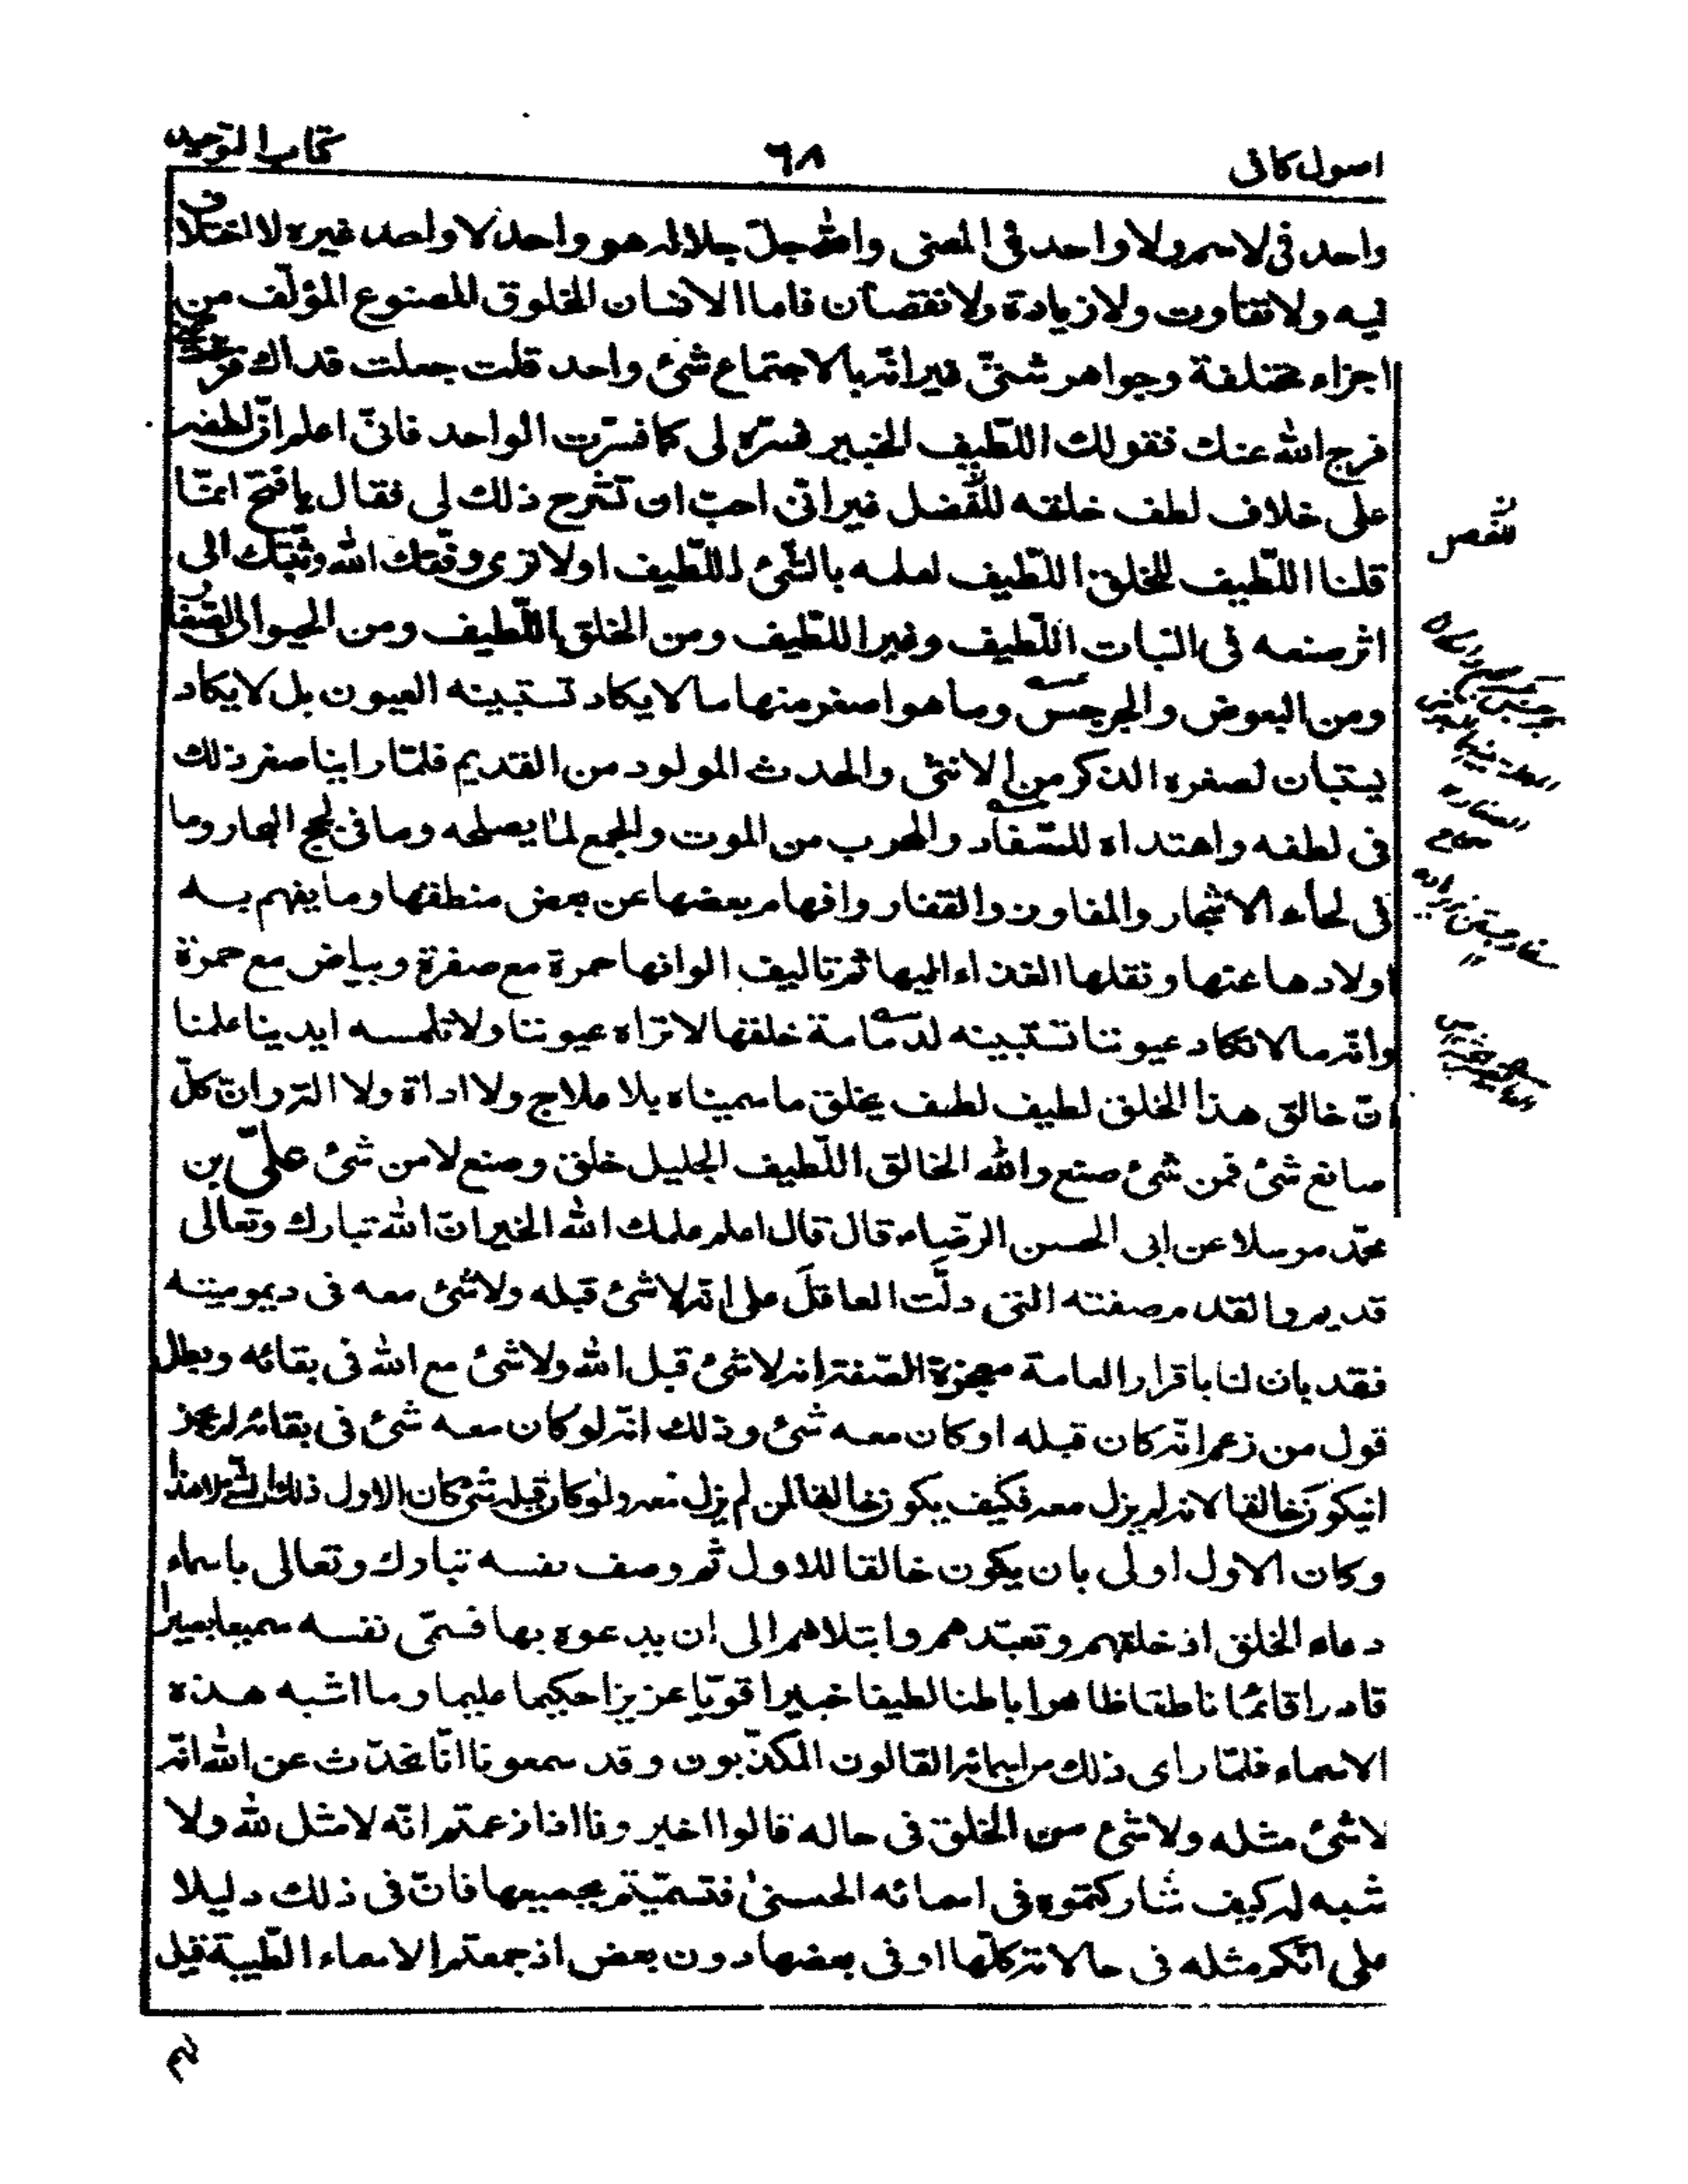 اصول كافى
٦٨
كتاب التوحيد
واحد فى لاسم ولا واحد فى المعنى والله جل جلاله هو واحد لا واحد غيره لا اختلاف
فيه ولا تفاوت ولا زيادة ولا نقصان فاما الانسان المخلوق المصنوع المؤلّف من
اجزاء مختلفة وجواهر شتىّ غير انّه بالاجتماع شئ واحد قلت جعلت فداك فرجت
فرج الله عنك فقولك اللّطيف الخبير فسّره لى كما فسّرت الواحد فانّى اعلم انّ لطفه
على خلاف لطف خلقه للفضل غير انّى احبّ ان تشرح ذلك لى فقال يا فتح انمّا
قلنا اللّطيف للخلق اللّطيف لعلمه بالشّئ اللّطيف اولا ترى وفّقك الله وثبّتك الى
اثر صنعه فى النبات اللّطيف وغير اللّطيف ومن الخلق اللّطيف ومن الحيوان الصّغار
ومن البعوض والجرجس وما هو اصغر منها ما لا يكاد تستبينه العيون بل لا يكاد
يستبان لصغره الذكر من الانثى والحدث المولود من القديم فلمّا راينا صغر ذلك
فى لطفه واهتداه للسّفاد والهرب من الموت والجمع لما يصلحه وما فى لجج البحار وما
فى لحاء الاشجار والمفاوز والقفار وافهام بعضها عن بعض منطقها وما يفهم به
اولادها عنها ونقلها الغذاء اليها ثم تاليف الوانها حمرة مع صفرة وبياض مع حمرة
وانّه ما لا تكاد عيوننا تستبينه لدمامة خلقها لا تراه عيوننا ولا تلمسه ايدينا علمنا
انّ خالق هذا الخلق لطيف لطف بخلق ما سميناه بلا علاج ولا اداة ولا الة وانّ كلّ
صانع شئ فمن شئ صنع والله الخالق اللّطيف الجليل خلق وصنع لا من شئ علىّ بن
محمّد مرسلا عن ابى الحسن الرّضاء قال قال اعلم علمك الله الخير انّ الله تبارك وتعالى
قديم والقدم صفته التى دلّت العاقل على انّه لا شئ قبله ولا شئ معه فى ديموميته
فقد بان لنا باقرار العامة معجزة الصّفة انه لا شئ قبل الله ولا شئ مع الله فى بقائه وبطل
قول من زعم انّه كان قبله او كان معه شئ وذلك انّه لو كان معه شئ فى بقائه لم يجز
ان يكون خالقا لانه لم يزل معه فكيف يكون خالقا لمن لم يزل معه ولو كان قبله شئ كان الاول ذلك الشّئ لا هذا
وكان الاول اولى بان يكون خالقا للاول ثم وصف نفسه تبارك وتعالى باسماء
دعاء الخلق اذ خلقهم وتعبّدهم وابتلاهم الى ان يدعوه بها فسمّى نفسه سميعا بصيرا
قادرا قائمًا ناطقا ظاهرا باطنا لطيفا خبيرا قويّا عزيزا حكيما عليما وما اشبه هذه
الاسماء فلمّا راى ذلك من اسمائه القالون المكذّبون وقد سمعونا انّا نحدّث عن الله انّه
لا شئ مثله ولا شئ من الخلق فى حاله قالوا اخبرونا اذا زعمتم انّه لا مثل لله ولا
شبه له كيف شاركتموه فى اسمائه الحسنى فتسمّيتم بجميعها فانّ فى ذلك دليلا
على انّكم مثله فى حالاته كلّها او فى بعضها دون بعض اذ جمعتم الاسماء الطّيبة قيل